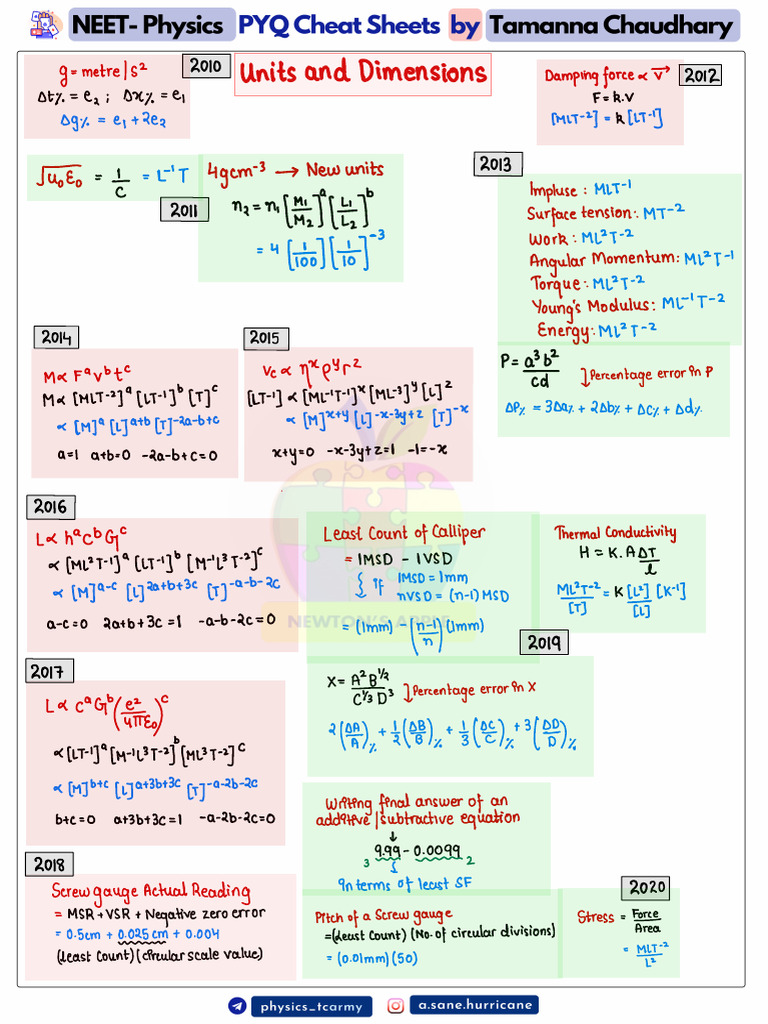 NEET- Physics PYQ Cheat Sheets by Tamanna Chaudhary
Units and Dimensions
2010
g = metre/s²
Δt% = e₂ ; Δx% = e₁
Δg% = e₁+2e₂
2012
Damping force ∝ V→
F = k.V
[MLT-2] = k[LT-1]
√μ₀ε₀ = 1/C = L⁻¹T
2011
4gcm⁻³ → New units
n₂ = n₁ [M₁/M₂]ᵃ [L₁/L₂]ᵇ
= 4 [1/100] [1/10]⁻³
2013
Impluse : MLT-1
Surface tension: MT-2
Work : ML²T-2
Angular Momentum: ML²T-1
Torque : ML²T-2
Young's Modulus: ML⁻¹T-2
Energy: ML²T-2
P = a³b²/cd ↓ Percentage error in P
ΔP% = 3Δa% + 2Δb% + Δc% + Δd%
2014
M ∝ Fᵃvᵇtᶜ
M ∝ [MLT-2]ᵃ [LT-1]ᵇ [T]ᶜ
∝ [M]ᵃ [L]ᵃ⁺ᵇ [T]⁻²ᵃ⁻ᵇ⁺ᶜ
a=1 a+b=0 -2a-b+c=0
2015
Vc ∝ ηˣρʸr²
[LT-1] ∝ [ML-1T-1]ˣ [ML-3]ʸ [L]²
∝ [M]ˣ⁺ʸ [L]⁻ˣ⁻³ʸ⁺ᶻ [T]⁻ˣ
x+y=0 -x-3y+z=1 -1=-x
2016
L ∝ hᵃcᵇGᶜ
∝ [ML²T-1]ᵃ [LT-1]ᵇ [M-1L³T-2]ᶜ
∝ [M]ᵃ⁻ᶜ [L]²ᵃ⁺ᵇ⁺³ᶜ [T]⁻ᵃ⁻ᵇ⁻²ᶜ
a-c=0 2a+b+3c=1 -a-b-2c=0
Least Count of Calliper
= 1MSD - 1VSD
{ if 1MSD = 1mm
nVSD = (n-1)MSD
= (1mm) - (n-1/n)(1mm)
Thermal Conductivity
H = K.A ΔT/l
ML²T-2/[T] = K [L²]/[L] [K-1]
NEWTON'S APPLE
2019
X = A²B^1/2/C^1/3D³ ↓ Percentage error in X
2(ΔA/A)% + 1/2(ΔB/B)% + 1/3(ΔC/C)% + 3(ΔD/D)%
2017
L ∝ CᵃGᵇ(e²/4πε₀)ᶜ
∝ [LT-1]ᵃ [M-1L³T-2]ᵇ [ML³T-2]ᶜ
∝ [M]ᵇ⁺ᶜ [L]ᵃ⁺³ᵇ⁺³ᶜ [T]⁻ᵃ⁻²ᵇ⁻²ᶜ
b+c=0 a+3b+3c=1 -a-2b-2c=0
Writing final answer of an
additive/subtractive equation
↓
3 9.99 - 0.0099 2
In terms of least SF
2018
Screw gauge Actual Reading
= MSR + VSR + Negative zero error
= 0.5cm + 0.025cm + 0.004
(Least Count)(circular scale value)
Pitch of a Screw gauge
= (Least Count) (No. of circular divisions)
= (0.01mm)(50)
2020
Stress = Force/Area
= MLT-2/L²
physics_tcarmy
a.sane.hurricane